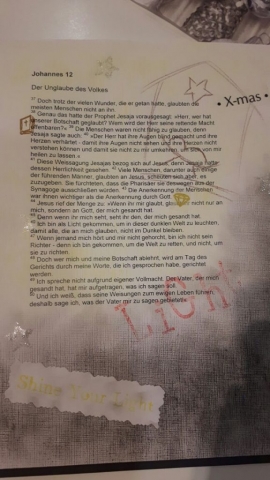 Johannes 12
• X-mas •
Der Unglaube des Volkes
37 Doch trotz der vielen Wunder, die er getan hatte, glaubten die
meisten Menschen nicht an ihn.
38 Genau das hatte der Prophet Jesaja vorausgesagt: »Herr, wer hat
unserer Botschaft geglaubt? Wem wird der Herr seine rettende Macht
offenbaren?« 39 Die Menschen waren nicht fähig zu glauben, denn
Jesaja sagte auch: 40 »Der Herr hat ihre Augen blind gemacht und ihre
Herzen verhärtet - damit ihre Augen nicht sehen und ihre Herzen nicht
verstehen können und damit sie nicht zu mir umkehren, um sich von mir
heilen zu lassen.«
41 Diese Weissagung Jesajas bezog sich auf Jesus, denn Jesaja hatte
dessen Herrlichkeit gesehen. 42 Viele Menschen, darunter auch einige
der führenden Männer, glaubten an Jesus, scheuten sich aber, es
zuzugeben. Sie fürchteten, dass die Pharisäer sie deswegen aus der
Synagoge ausschließen würden. 43 Die Anerkennung der Menschen
war ihnen wichtiger als die Anerkennung durch Gott.
44 Jesus rief der Menge zu: »Wenn ihr mir glaubt, nicht nur an
mich, sondern an Gott, der mich gesandt hat.
45 Denn wenn ihr mich seht, seht ihr den, der mich gesandt hat.
46 Ich bin als Licht gekommen, um in dieser dunklen Welt zu leuchten,
damit alle, die an mich glauben, nicht im Dunkel bleiben.
47 Wenn jemand mich hört und mir nicht gehorcht, bin ich nicht sein
Richter - denn ich bin gekommen, um die Welt zu retten, und nicht, um
sie zu richten.
48 Doch wer mich und meine Botschaft ablehnt, wird am Tag des
Gerichts durch meine Worte, die ich gesprochen habe, gerichtet
werden.
49 Ich spreche nicht aufgrund eigener Vollmacht. Der Vater, der mich
gesandt hat, hat mir aufgetragen, was ich sagen soll.
50 Und ich weiß, dass seine Weisungen zum ewigen Leben führen,
deshalb sage ich, was der Vater mir zu sagen
LiGht
Shine Your Light